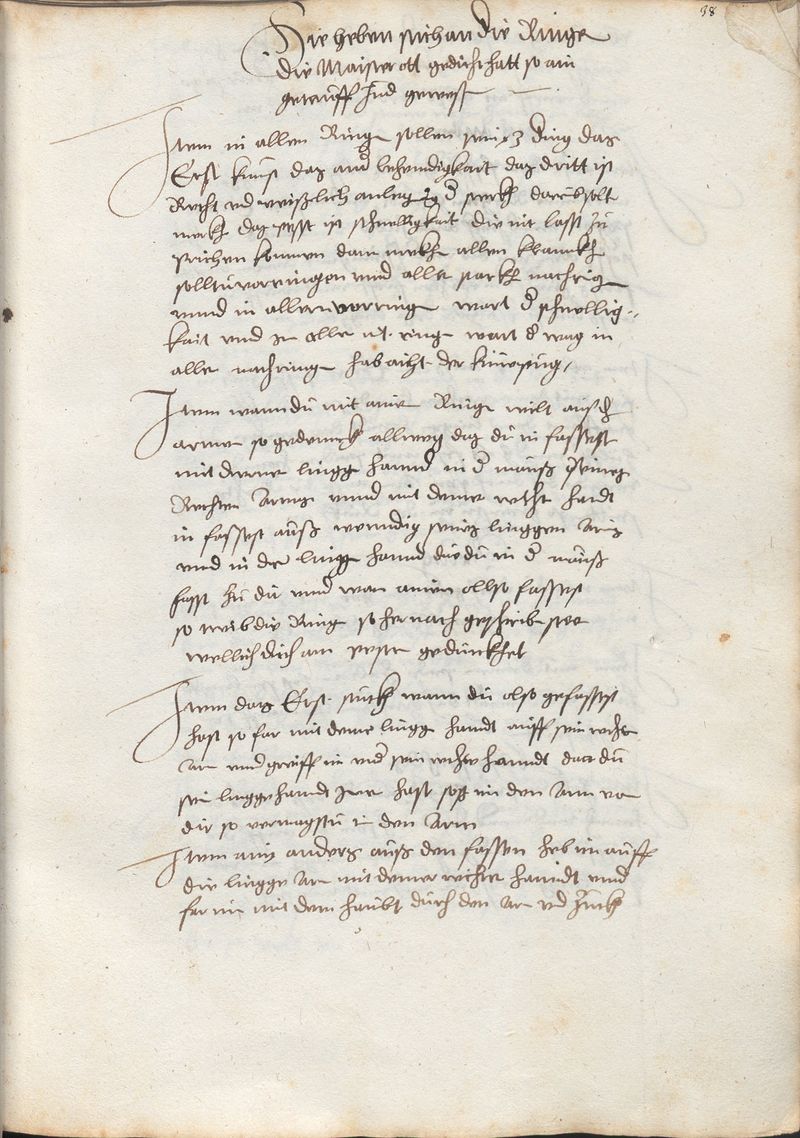 98
Hie heben sich an die Ringe
die Maister ott gedicht hatt so ain
getaufft Jud gewest
Item in allen Ringe sollen sein 3 ding das
Erst kunst das and behendigkait das dritt ist
Recht vnd weißlich anleg d sterk darub solt
merk das pesst ist schnelligkait die nit lasst zu
prichen komen dan merkh allen krankh
solltu vorringen vnnd alle starkh nachring
vnnd in allen vorring wart d schnellig
kait vnnd in alle mit ring wart d wag in
alle nachringe hab acht der kniepüg
Item wann du mit aine Ringe wilt auß
arme so gedennckh allweg das du in fassest
mit deiner lingg hannd in d mauß seines
Rechten Arms vnnd mit deine recht handt
in fassest auß wenndig seins linggen Arm
vnnd in der lingg hannd die du in d mauß
fasst zu dir vnnd wan ainen allso fassest
so treib die Ring so hernach geschriben stee
wellich dich am pesten gedunckhet
Item das Erst stuckh wann du also gefasset
hast so far mit deine lingg handt auff sein rechte
Arm vnnd greiff im vnd sein rechte hanndt das du
sein lingge handt Inne hast stoß im den Arm von
dir so vermagstu im den Arm
Item ains anders auß den fassen heb im auff
die lingge Arm mit deiner rechte hanndt vnnd
far im mit dem haubt durch den Arm vnd zuckh